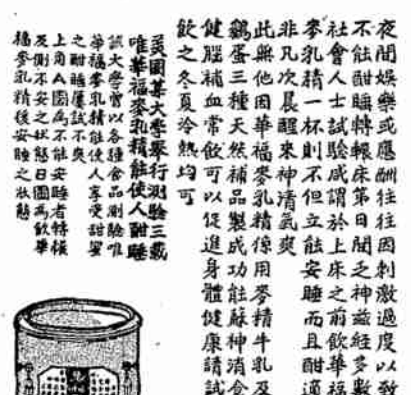 夜間娛樂或應酬往往因刺激過度以致
不能酣睡轉輾床第日間乏神茲經多數
社會人士試驗咸謂於上床之前飲華福
麥乳精一杯則不但立能安睡而且酣適
非凡次晨醒來神清氣爽
此無他因華福麥乳精係用麥精牛乳及
鷄蛋三種天然補品製成功能蘇神消食
健腦補血常飲可以促進身體健康請試
飲之冬夏冷熱均可
美國某大學舉行測驗三載
唯華福麥乳精能使人酣睡
該大學曾以各種食品測驗唯
華福麥乳精能使人享受甜蜜
之酣睡屢試不爽
上角A圖為不能安睡者轉輾
反側不安之狀態B圖為飲華
福麥乳精後安睡之狀態